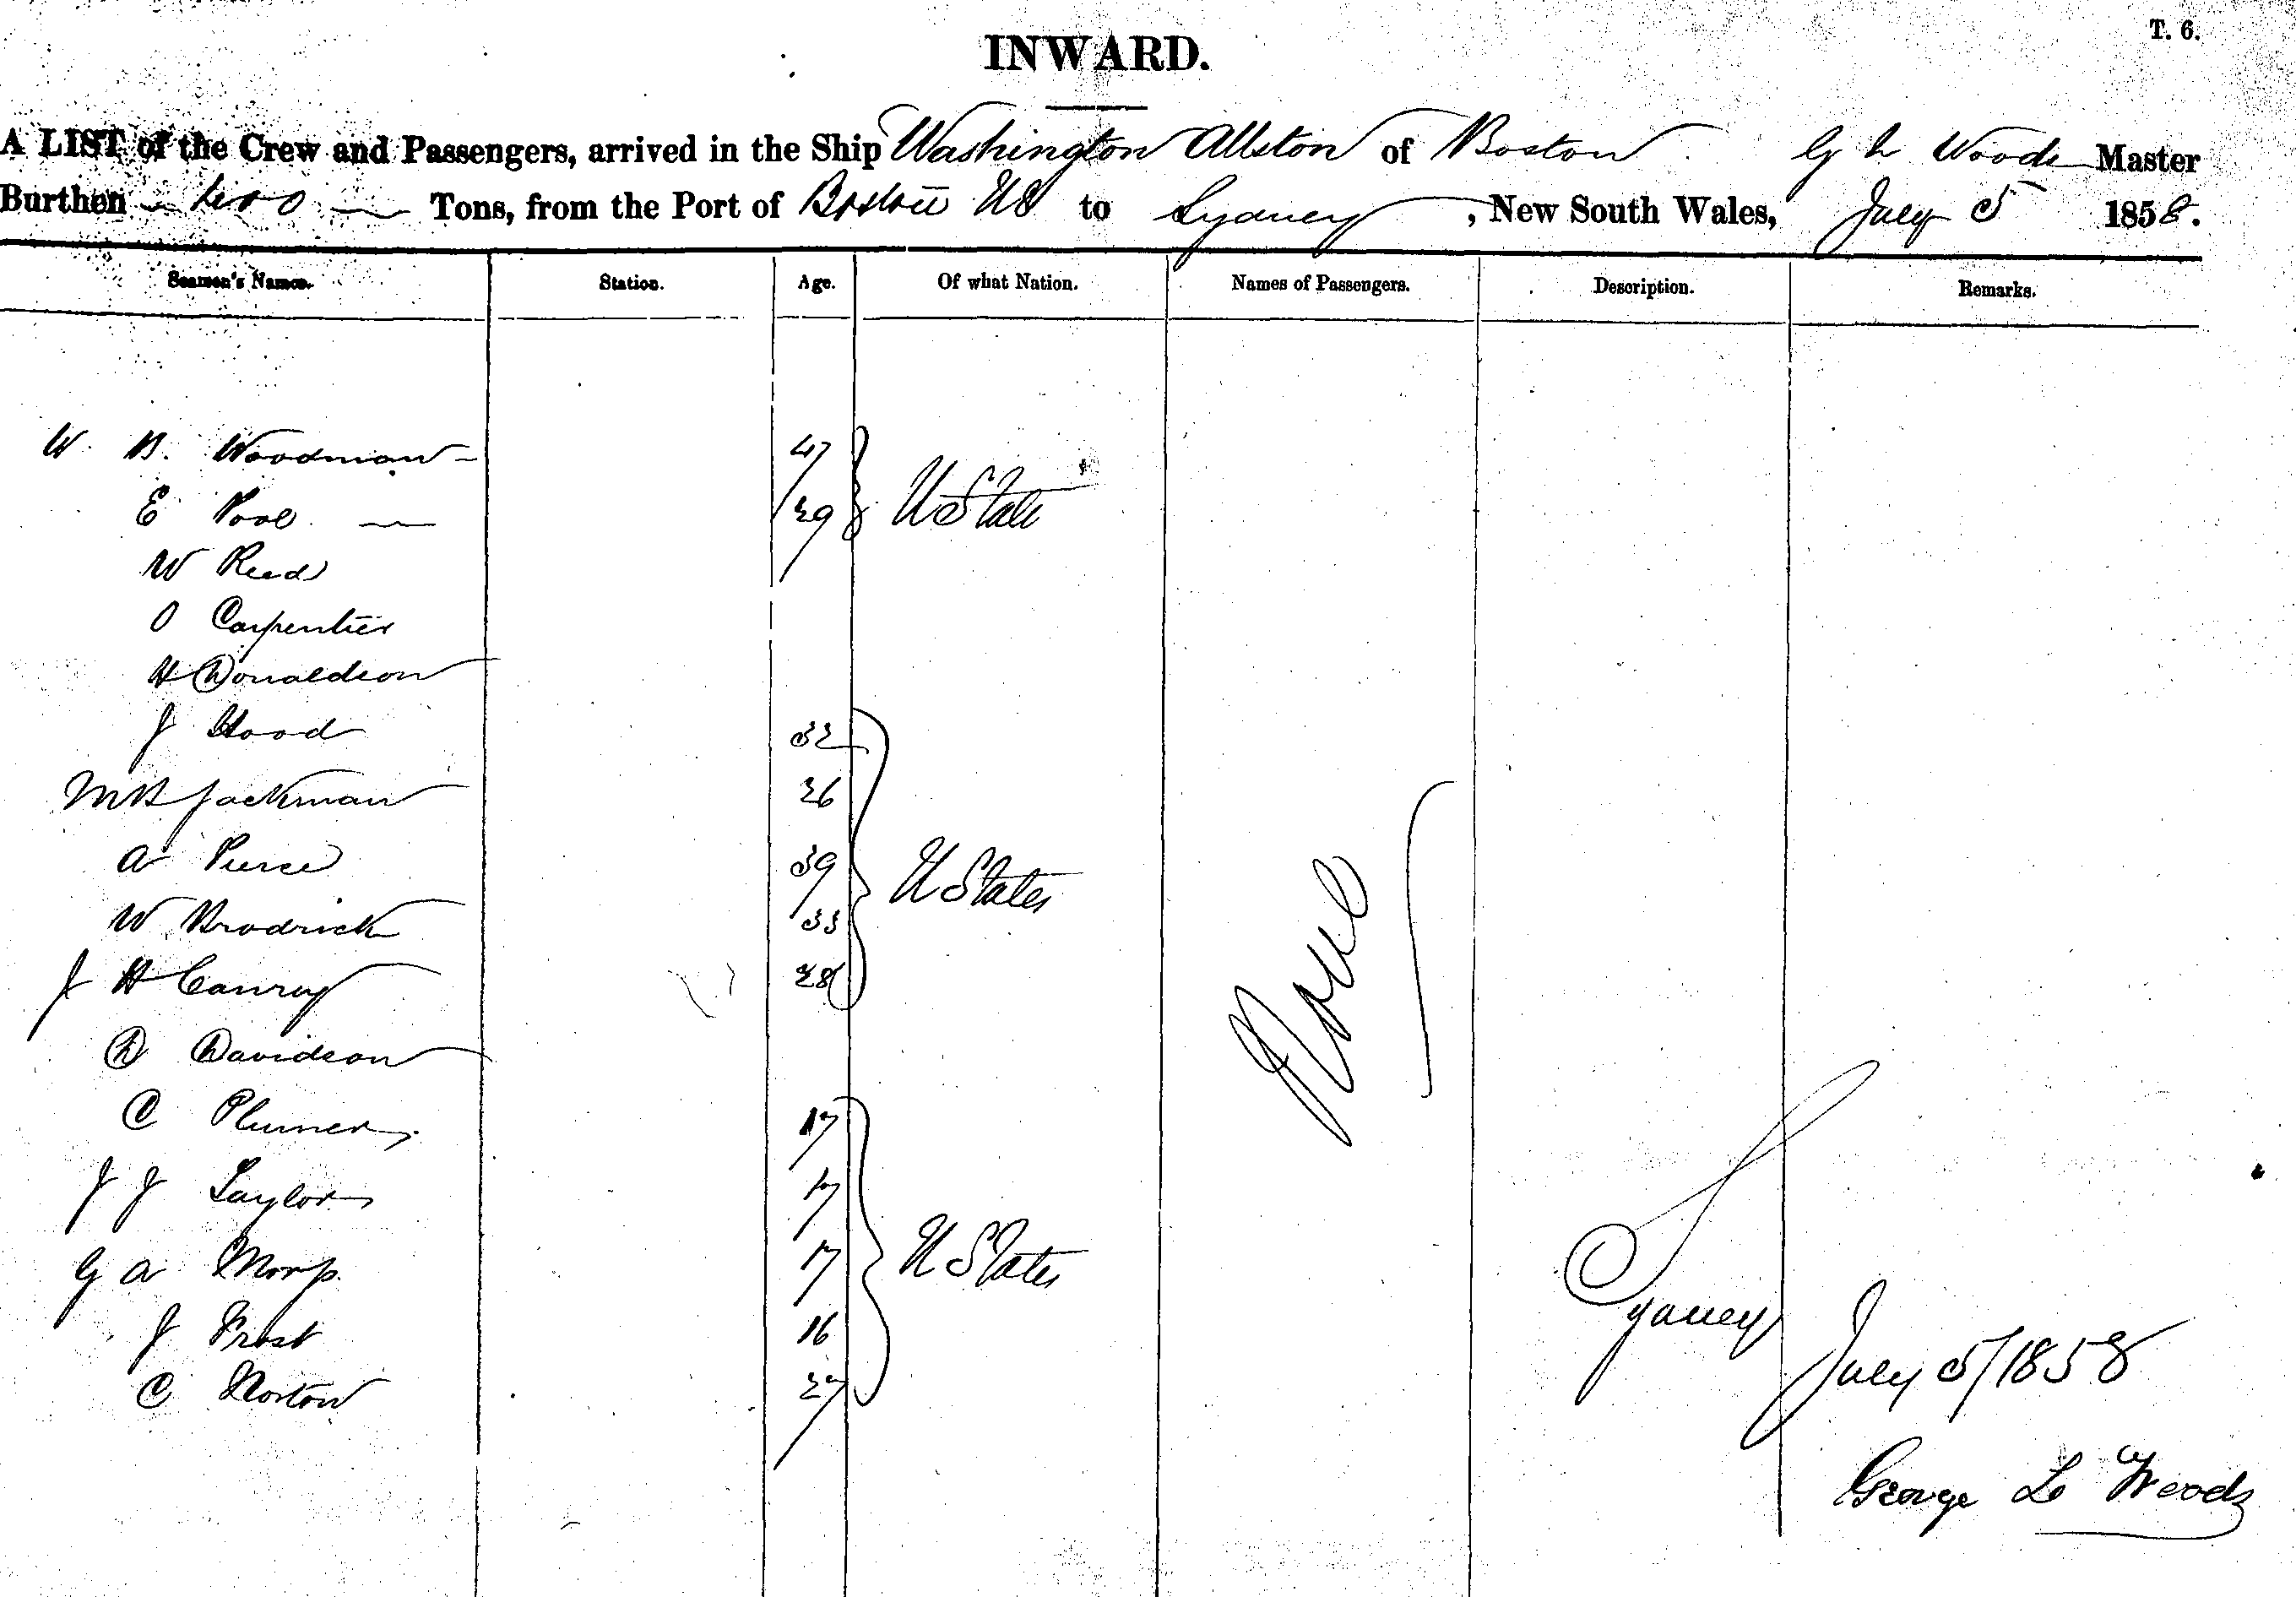 T. 6.
INWARD.
A LIST of the Crew and Passengers, arrived in the Ship Washington Allston of Boston G L Woods Master
Burthen Tons, from the Port of Boston US to Sydney, New South Wales, July 5 1858.
Seamen's Names. Station. Age. Of what Nation. Names of Passengers. Description. Remarks.
W. B. Woodman 47
E Pool 29 U State
W Reed
O Carpenter
H Donaldson
J Hood 32
M B Jackman 26
A Pierce 39 U States
W Brodrick 33
J H Canney 28
None
D Davidson
C Plumer 17
J J Taylor 17
G A 17 U States
J Frost 16
C Norton 27
Sydney July 5/1858
George L Woods